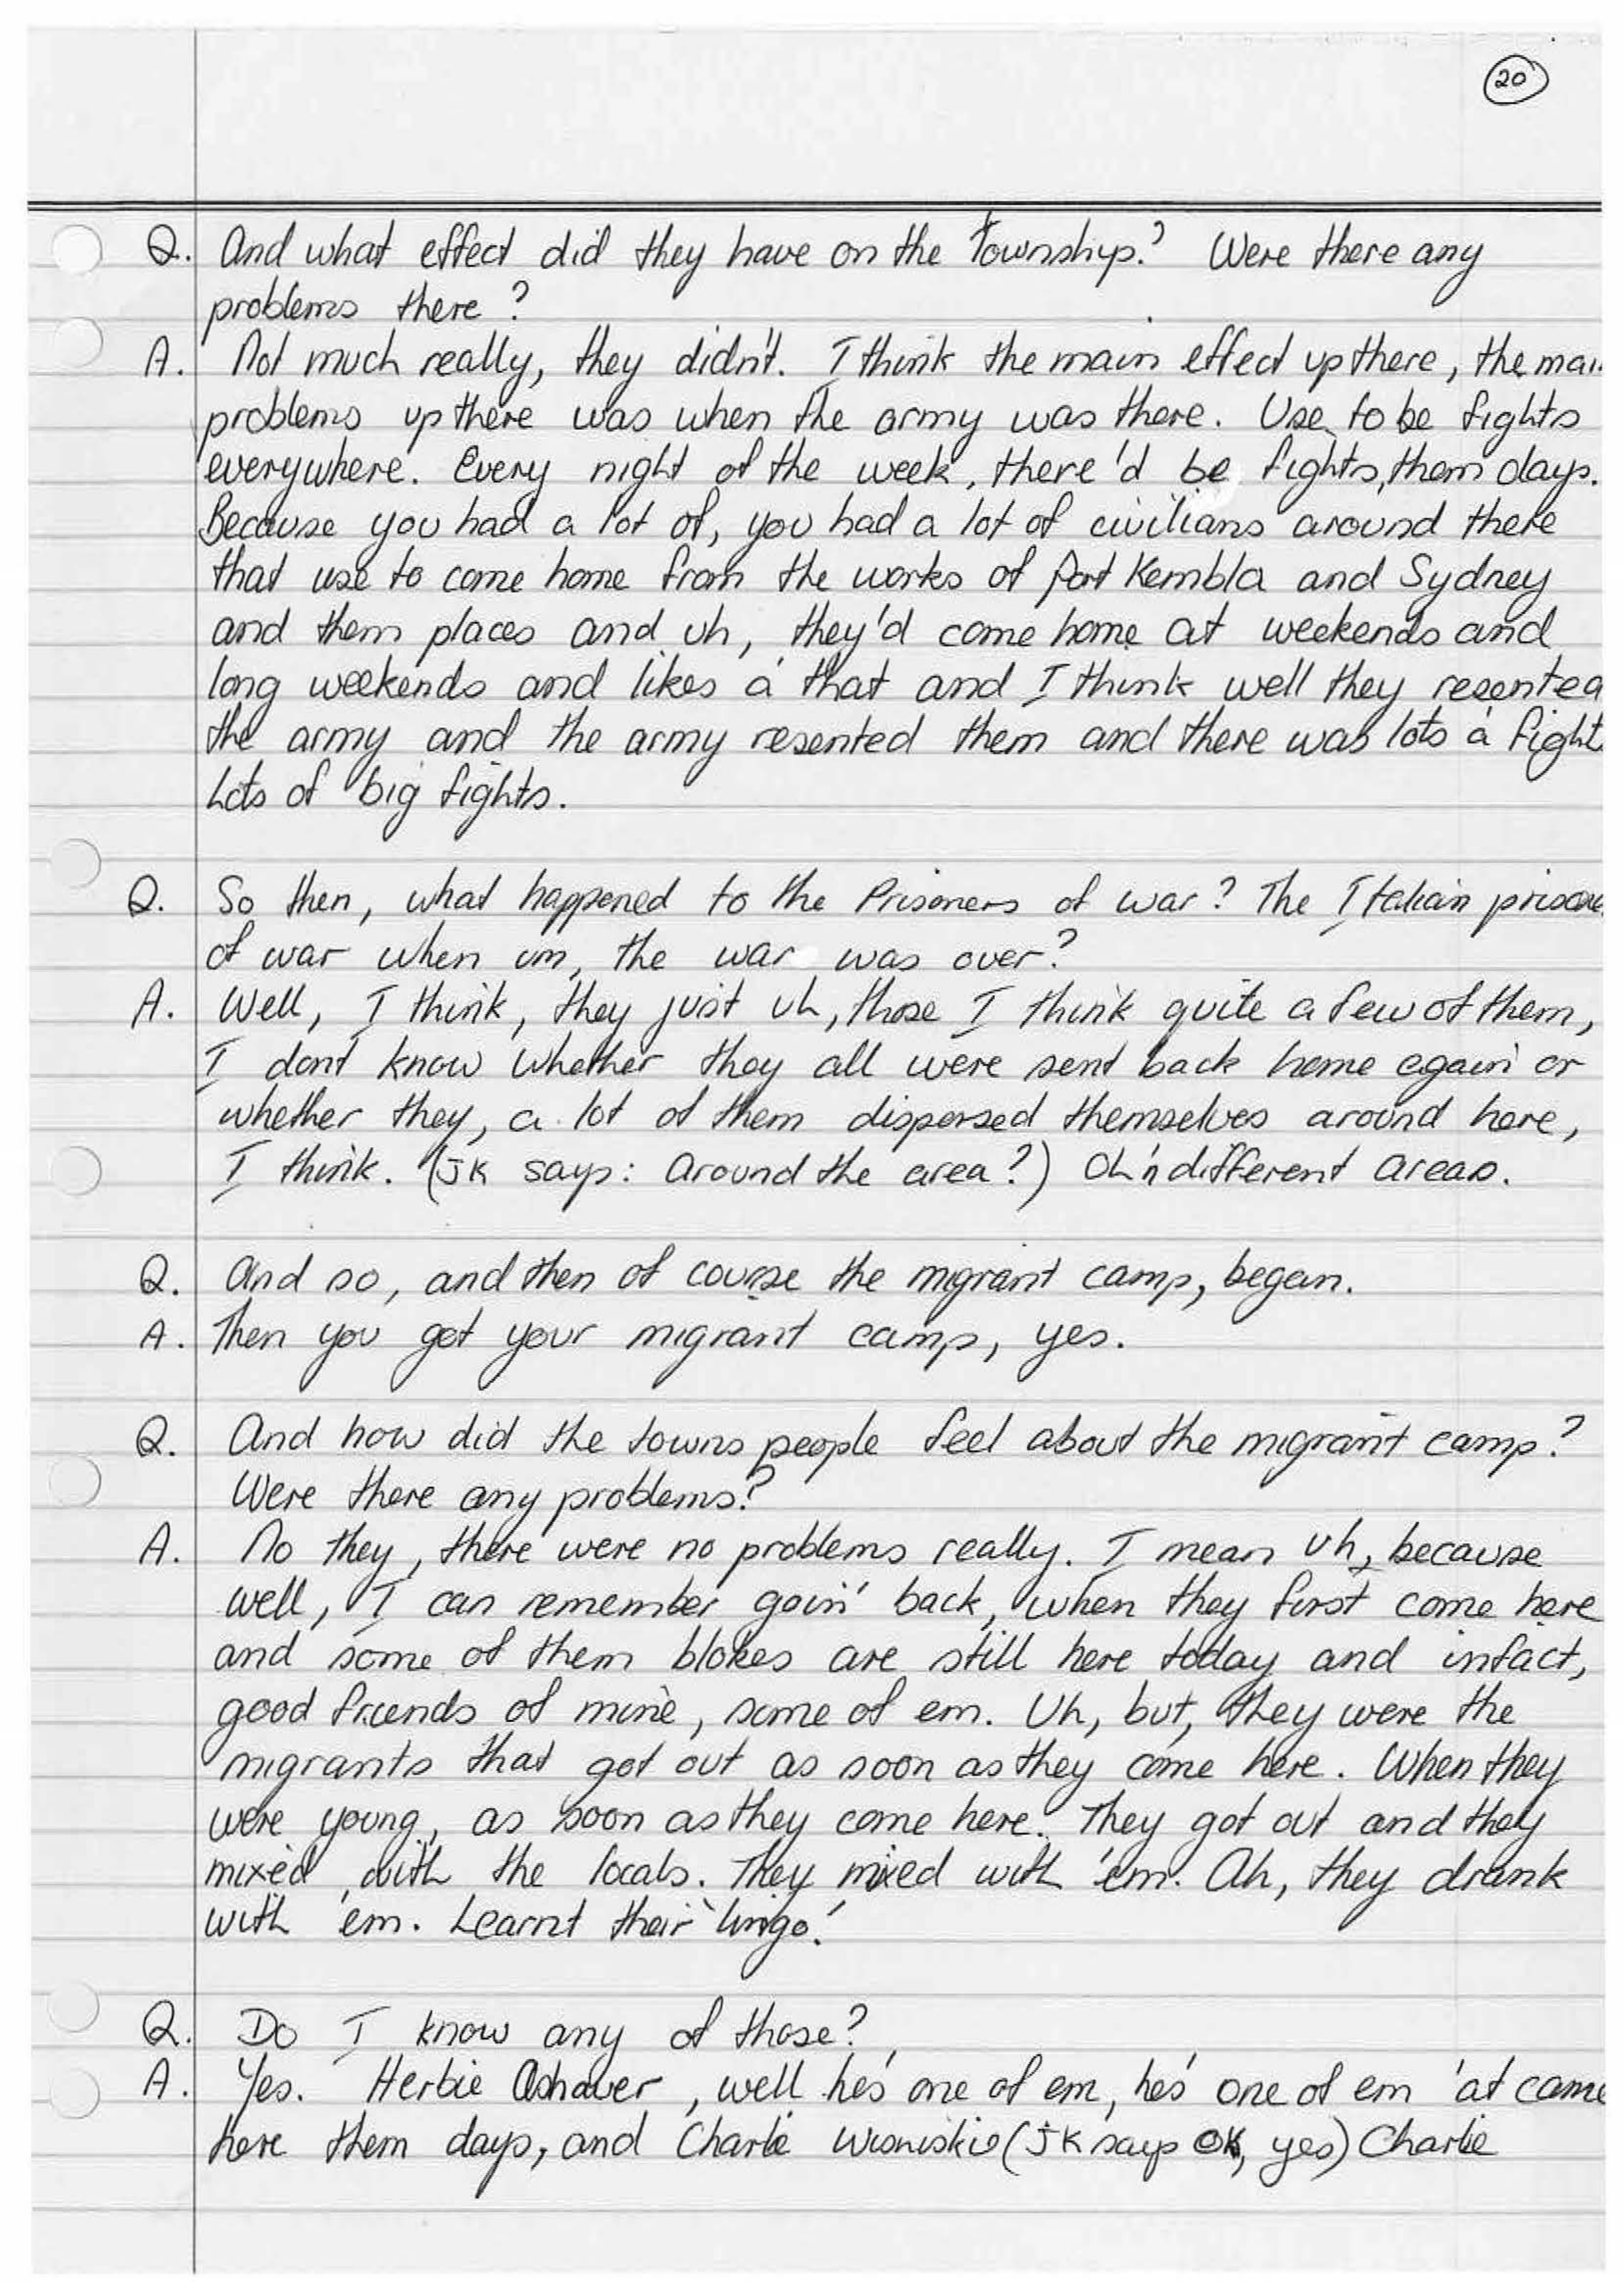 20
Q. And what effect did they have on the Township? Were there any
problems there?
A. Not much really, they didn't. I think the main effect up there, the mai
problems up there was when the army was there. Use to be fights
everywhere. Every night of the week, there'd be fights, them days.
Because you had a lot of, you had a lot of civilians around there
that use to come home from the works of Port Kembla and Sydney
and them places and uh, they'd come home at weekends and
long weekends and likes a' that and I think well they resented
the army and the army resented them and there was lots a' fight
Lots of big fights.
Q. So then, what happened to the Prisoners of war? The Italian prisone
of war when um, the war was over?
A. Well, I think, they just uh, those I think quite a few of them,
I dont know whether they all were sent back home again or
whether they, a lot of them dispersed themselves around here,
I think. (JK says: Around the area?) Oh 'n different areas.
Q. And so, and then of course the migrant camp, began.
A. Then you got your migrant camp, yes.
Q. And how did the towns people feel about the migrant camp?
Were there any problems?
A. No they, there were no problems really. I mean uh, because
well, I can remember goin' back, when they first come here
and some of them blokes are still here today and infact,
good friends of mine, some of em. Uh, but, they were the
migrants that got out as soon as they come here. When they
were young, as soon as they come here. They got out and they
mixed with the locals. They mixed with 'em. Ah, they drank
with 'em. Learnt their 'lingo'.
Q. Do I know any of those?
A. Yes. Herbie , well he's one of em, he's one of em 'at came
here them days, and Charlie (JK says OK, yes) Charlie